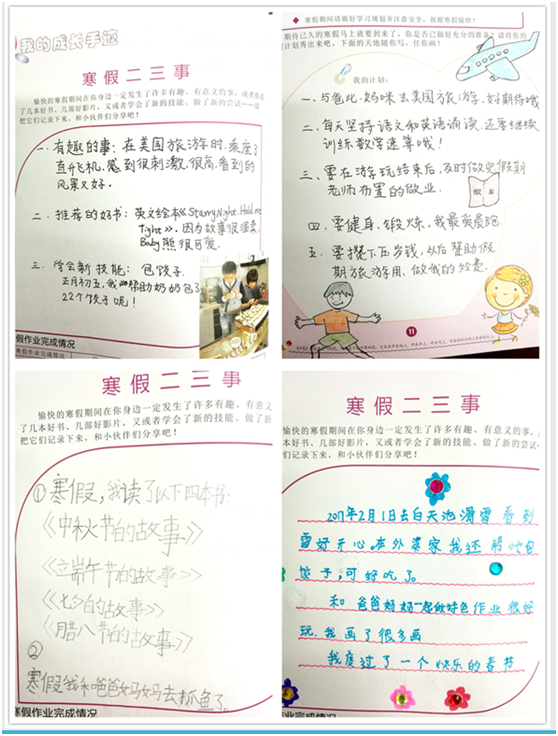 我的成长手迹
寒假二三事
愉快的寒假期间在你身边一定发生了许多有趣、有意义的事，或者你
了几本好书、几部好影片，又或者学会了新的技能、做了新的尝试
把它们记录下来，和小伙伴们分享吧！
一、有趣的事：在美国旅游时，乘座了
直升飞机，感到很刺激，很高，看到的
风景又好。
二、推荐的好书：英文绘本《Starry Night, Hold me
Tight》，因为故事很温柔，
Baby熊很可爱。
三、学会新技能：包饺子。
正月初五，我帮助奶奶包了
22个饺子呢！
假作业完成情况
寒假作业完成情况
寒假期间请做好学习规划并注意安全，祝愿寒假愉快！
期待已久的寒假马上就要到来了，你是否已做好充分的准备？请将你的
计划秀出来吧，下面的天地随你写，任你画！
我的计划：
一、与爸比、妈咪去美国旅游，好期待哦
二、每天坚持语文和英语诵读，还要继续
训练数学速算哦！
三、要在游玩结束后，及时做完假期
老师布置的做业。
做业
四、要健身、锻炼，我最爱晨跑
五、要攒下压岁钱，从后帮助假
期旅游用，做我的经费。
11
寒假二三事
愉快的寒假期间在你身边一定发生了许多有趣、有意义
了几本好书、几部好影片，又或者学会了新的技能、做了新
把它们记录下来，和小伙伴们分享吧！
①寒假，我读了以下四本书：
《中秋节的故事》
《端午节的故事》
《七夕的故事》
《腊八节的故事》
②
寒假我和爸爸妈妈去抓鱼了。
寒假作业完成情况
寒假二三事
愉快的寒假期间在你身边一定发生了许多有趣、有意义的事，
了几本好书、几部好影片，又或者学会了新的技能、做了新的尝试
把它们记录下来，和小伙伴们分享吧！
2017年2月1日去白天池滑雪看到
雪好开心。在外婆家我还帮忙包
饺子，可好吃了。
和爸爸妈妈一起做特色作业很好
玩，我画了很多画
我度过了一个快乐的春节
业完成情况